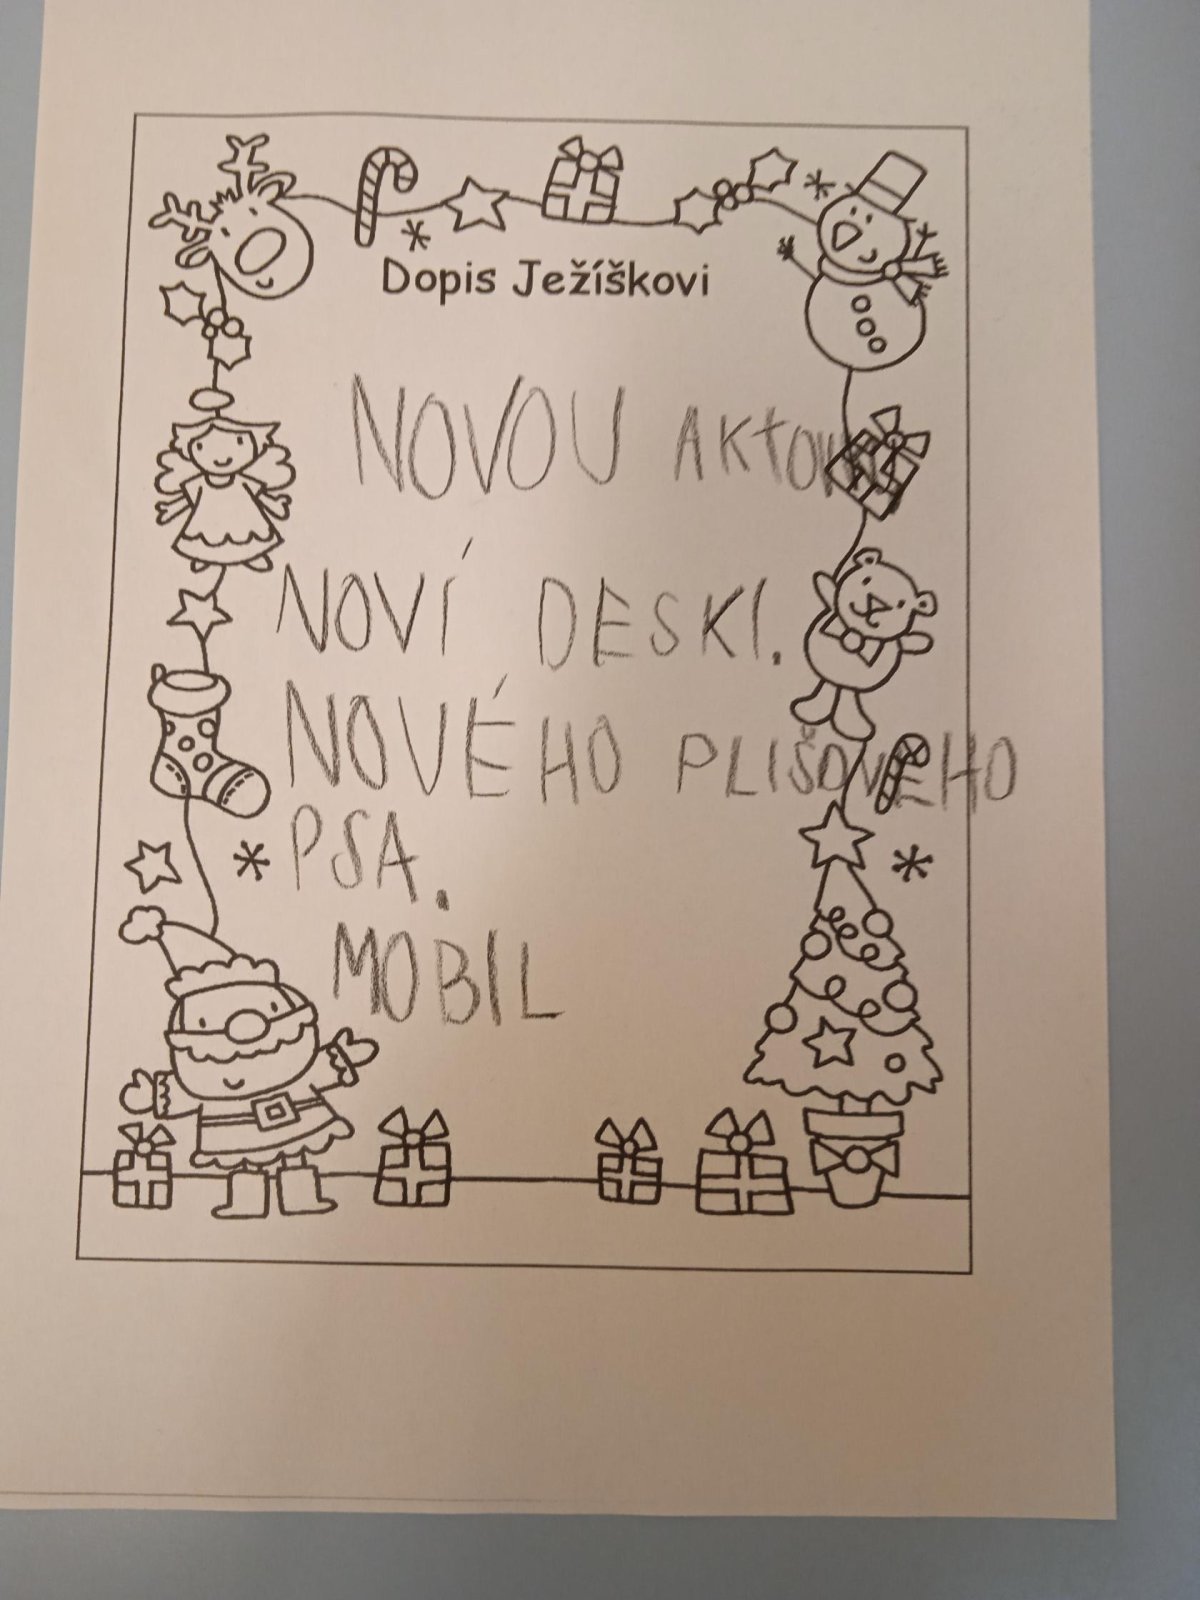 Dopis Ježíškovi
NOVOU
NOVÍ DESKI.
NOVÉHO PLIŠOVÉHO
PSA.
MOBIL